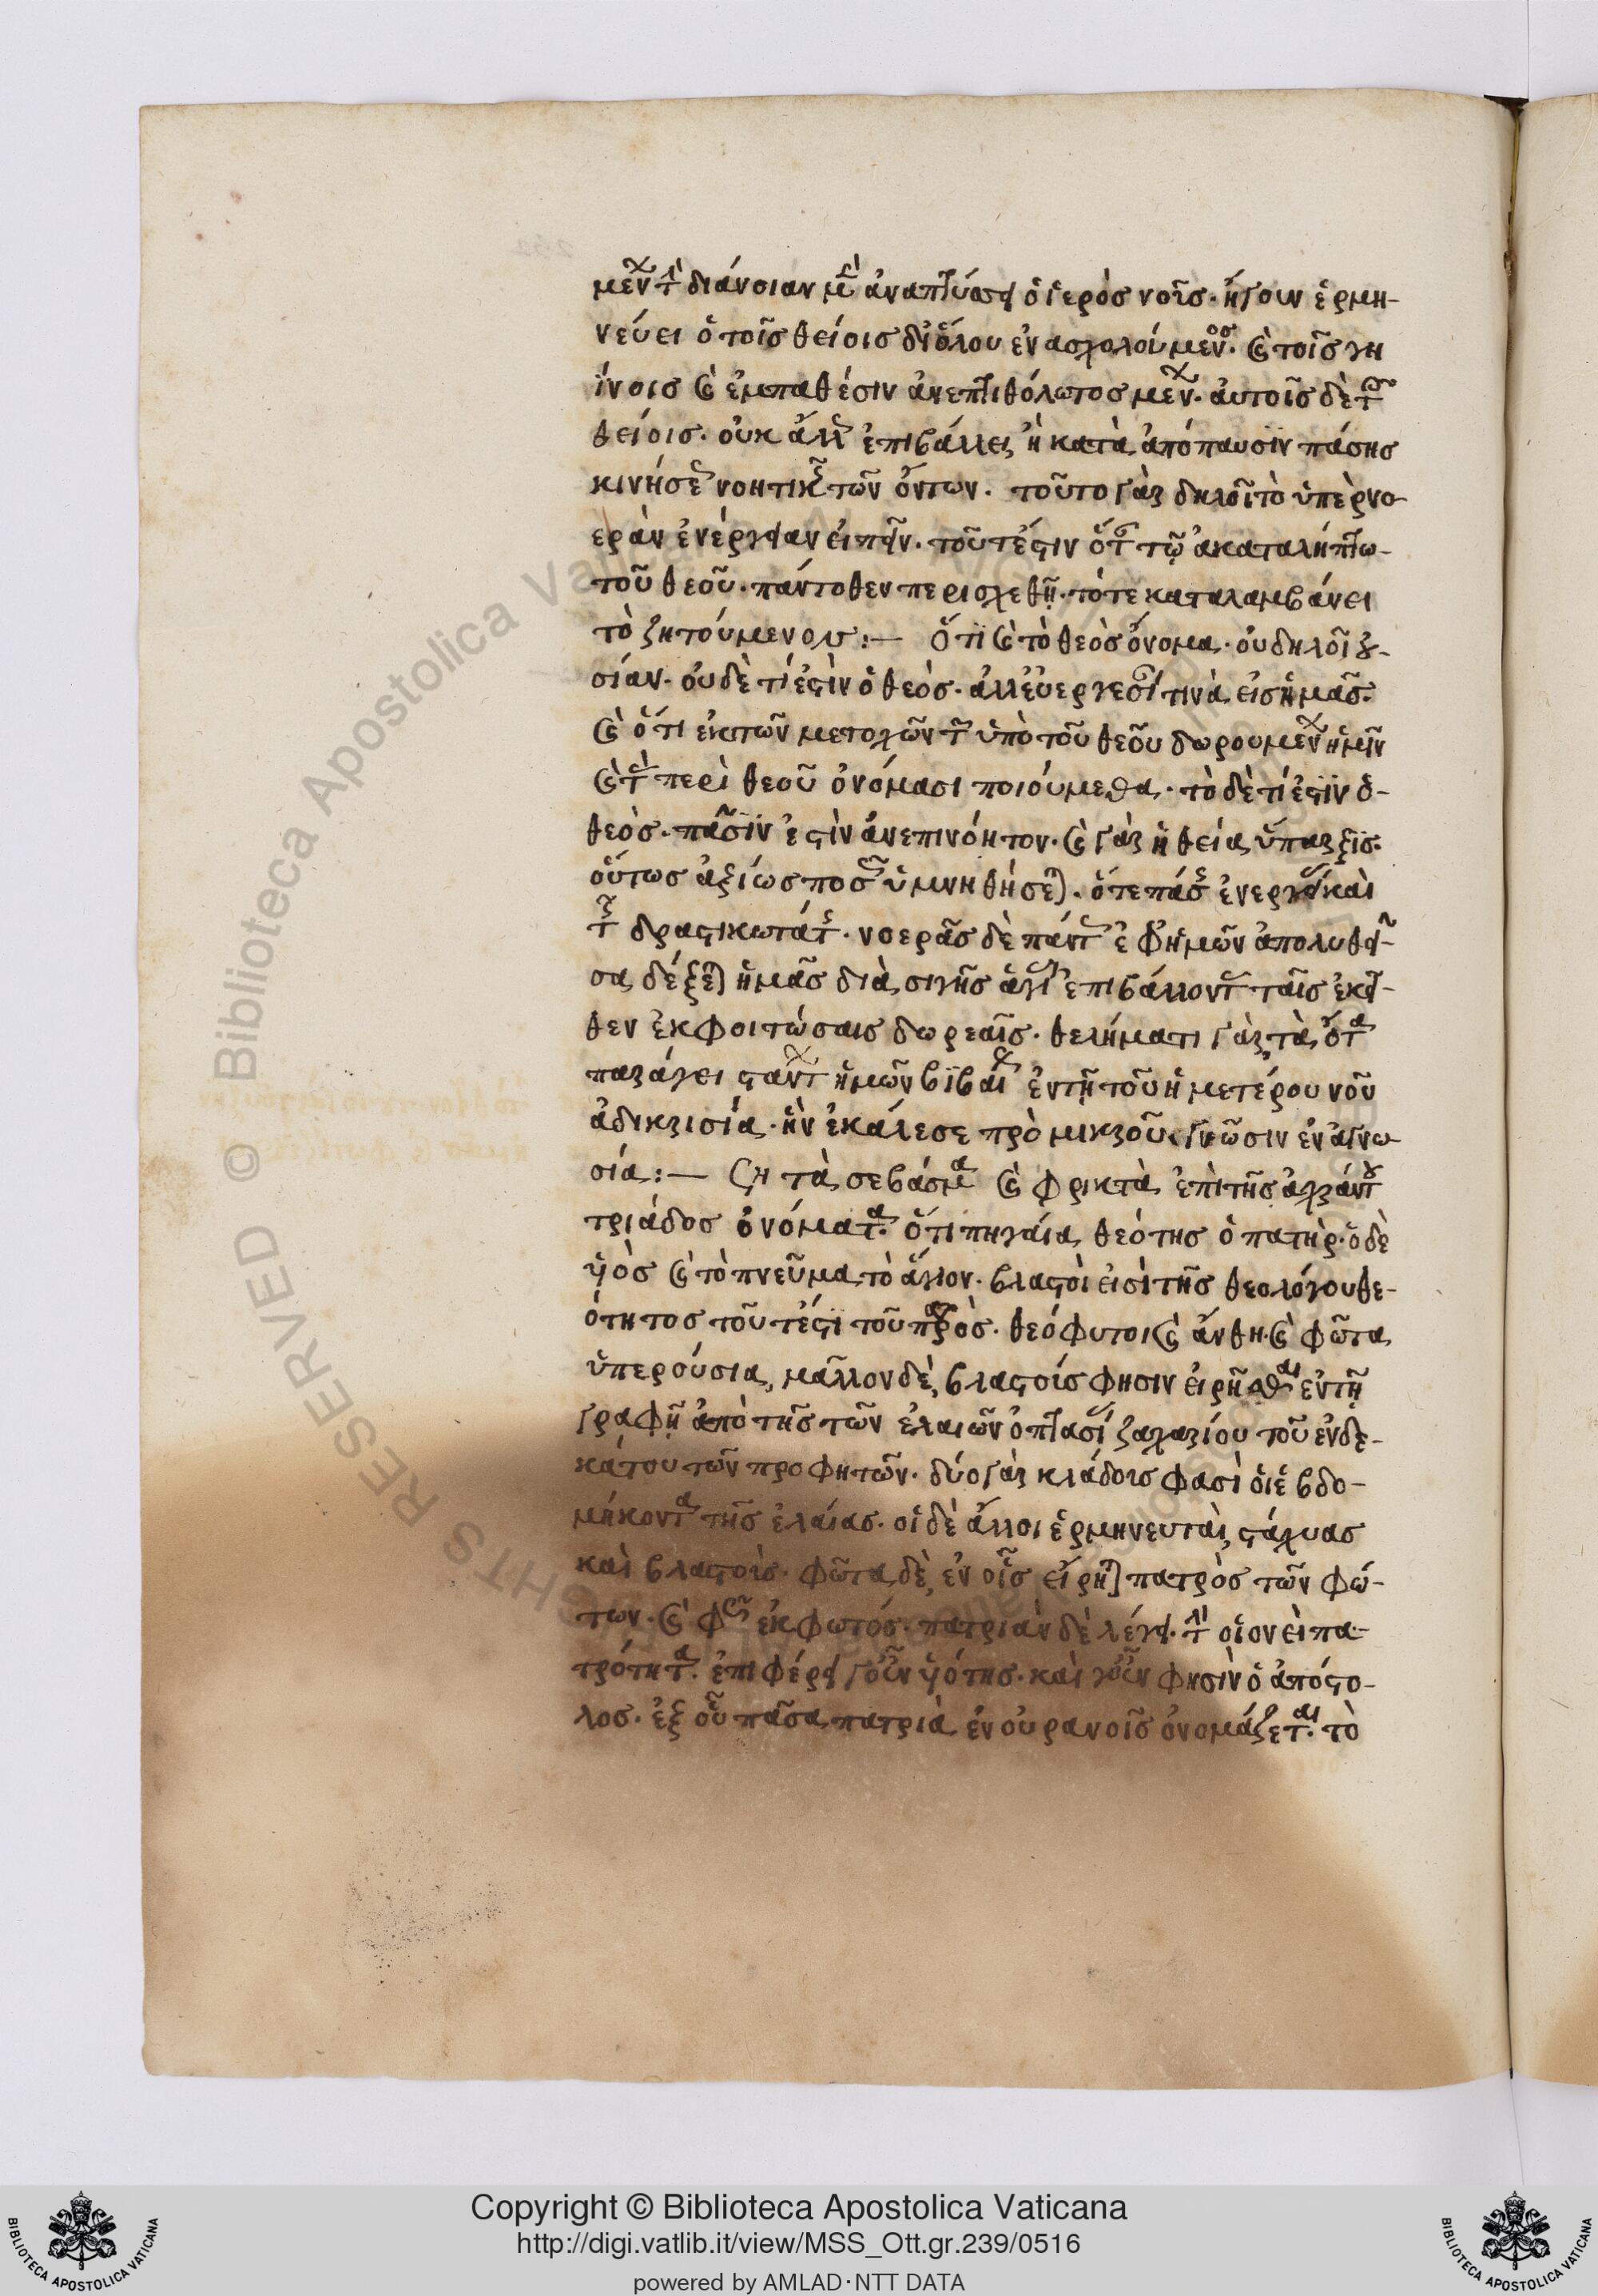 μεν τ διάνοιαν μ ἀναπτύσσει ὁ ἱερὸς νοῦς. ἤγουν ἑρμη-
νεύει ὁ τοῖς θείοις δι' ὅλου ἐνασχολούμενος. καὶ τοῖς γη
ίνοις καὶ ἐμπαθέσιν ἀνεπιθόλωτος μεν. αὐτοῖς δὲ τοῖς
θείοις. οὐκ ἄλλως ἐπιβάλλει, ἢ κατὰ ἀπόπαυσιν πάσης
κινήσεως νοητικῆς τῶν ὄντων. τοῦτο γὰρ δηλοῖ τὸ ὑπὲρ νο-
ερὰν ἐνέργειαν εἰπεῖν. τουτέστιν ὅταν τῷ ἀκαταλήπτω
τοῦ θεοῦ. πάντοθεν περισχεθῇ. τότε καταλαμβάνει
τὸ ζητούμενον :— Ὅτι καὶ τὸ θεὸς ὄνομα. οὐ δηλοῖ οὐ-
σίαν. οὐδὲ τί ἐστὶν ὁ θεός. ἀλλ' εὐεργεσίαν τινὰ εἰς ἡμᾶς.
καὶ ὅτι ἐκ τῶν μετοχῶν τῶν ὑπὸ τοῦ θεοῦ δωρουμένων ἡμῖν
καὶ τ περὶ θεοῦ ὀνόμασι ποιούμεθα. τὸ δὲ τί ἐστιν ὁ-
θεὸς. πᾶσιν ἐστὶν ἀνεπινόητον. καὶ γὰρ ἡ θεία ὕπαρξις.
οὕτως ἀξίως πως ὑμνηθήσεται. ὅτε πάσης ἐνεργείας καὶ
τῆς δραστικωτάτης. νοερᾶς δὲ πάντως ἐφ' ἡμῶν ἀπολυθεῖ-
σα δέξεται ἡμᾶς διὰ σιγῆς ἁγίας ἐπιβάλλοντας ταῖς ἐκεῖ-
θεν ἐκφοιτώσαις δωρεαῖς. θελήματι γὰρ τὰ ὄντα
παράγει πάντων ἡμῶν ἐν τῇ τοῦ ἡμετέρου νοῦ
ἀδικρισία. ἣν ἐκάλεσε πρὸ μικροῦ γνῶσιν ἐν ἀγνω-
σία :— Ση τὰ σεβάσμια καὶ φρικτὰ ἐπὶ τῆς ἀχράντου
τριάδος ὀνόματα. ὅτι πηγαία θεότης ὁ πατήρ. ὁ δὲ
υἱὸς καὶ τὸ πνεῦμα τὸ ἅγιον. βλαστοὶ εἰσὶ τῆς θεολόγου θε-
ότητος τουτέστι τοῦ πατρὸς. θεόφυτοι καὶ ἄνθη. καὶ φῶτα
ὑπερούσια, μᾶλλον δὲ, βλαστοίς φησιν εἰρῆσθαι ἐν τῇ
γραφῇ ἀπὸ τῆς τῶν ἐλαιῶν ὀπτασίας ζαχαρίου τοῦ ἑνδε-
κάτου τῶν προφητῶν. δύο γὰρ κλάδοις φασὶ οἱ ἑβδο-
μήκοντα τῆς ἐλαίας. οἱ δὲ ἄλλοι ἑρμηνευταὶ, στάχυας
καὶ βλαστοὶς. φῶτα δὲ, ἐν οἷς εἴρηται πατρὸς τῶν φώ-
των. καὶ φῶς ἐκ φωτός. πατριὰν δὲ λέγει. τὴν οἱονεὶ πα-
τρότητα. ἐπιφέρει γοῦν υἱότης. καὶ γοῦν φησὶν ὁ ἀπόστο-
λος. ἐξ οὗ πᾶσα πατριὰ ἐν οὐρανοῖς ὀνομάζεται. τὸ
Copyright © Biblioteca Apostolica Vaticana
http://digi.vatlib.it/view/MSS_Ott.gr.239/0516
powered by AMLAD·NTT DATA